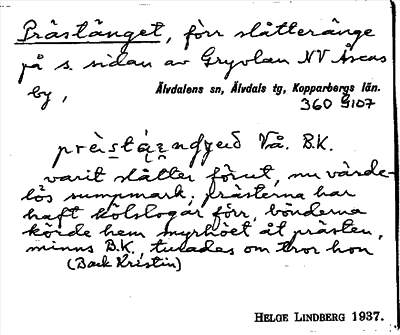 Prästänget, förr slåtteränge
på s. sidan av Gryvlan NV Åsens
by,
Älvdalens sn, Älvdals tg, Kopparbergs län.
360 9107
Vå. B.K.
varit slåtter förut, nu värde-
lös sumpmark, prästerna har
haft kolslogar förr, bönderna
körde hem myrhöet åt prästen,
minns B.K. tusades om tror hon
(Back Kristin)
HELGE LINDBERG 1937.